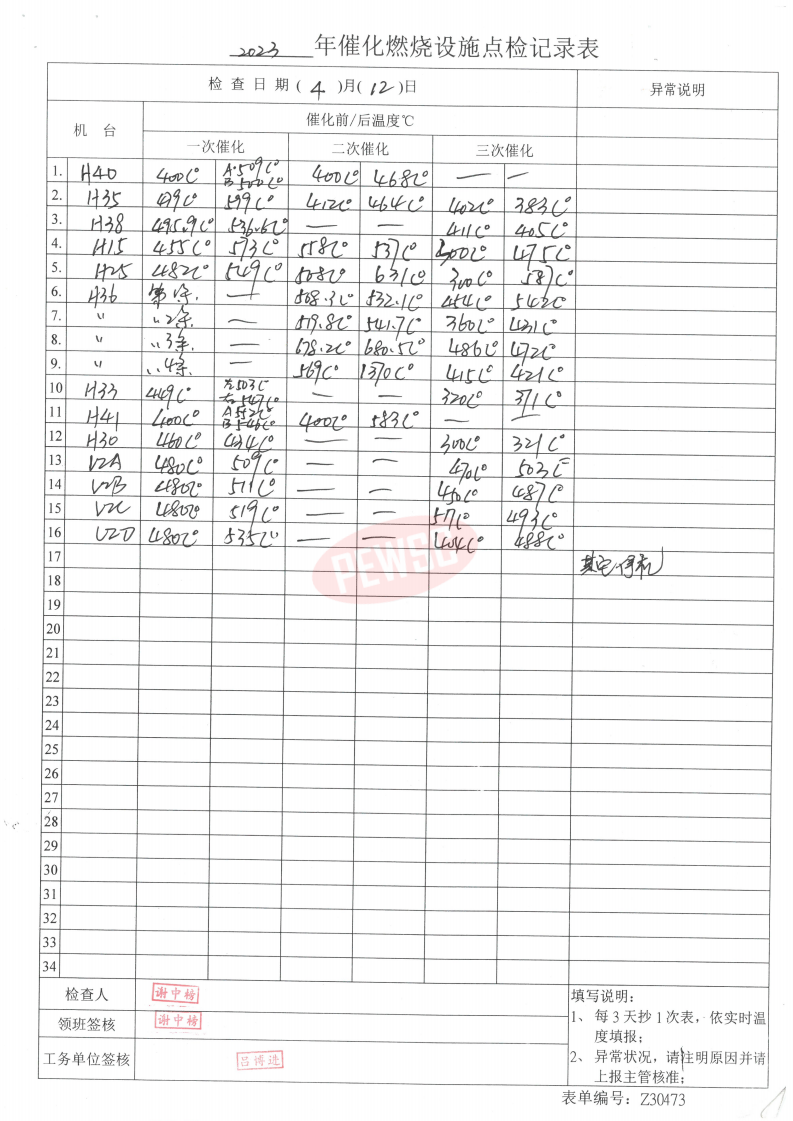 2023 年催化燃烧设施点检记录表
检 查 日 期 ( 4 )月( 12 )日 异常说明
机 台 催化前/后温度℃
一次催化 二次催化 三次催化
1. H40 400C° A·509C° B 500C° 400C° 468C° — —
2. H35 499C° 599C° 412C° 464C° 402C° 383C°
3. H38 495.9C° 536.6C° — — 411C° 405C°
4. H15 455C° 573C° 558C° 537C° 300C° 475C°
5. H25 482C° 549C° 508C° 631C° 300C° 587C°
6. H36 第1条. — 508.3C° 532.1C° 454C° 542C°
7. " ,,2条. — 519.8C° 541.7C° 360C° 431C°
8. " ,,3条. — 678.2C° 680.5C° 486C° 472C°
9. " ,,4条. — 569C° 1370C° 415C° 421C°
10 H33 449C° 左503C° 右547C° — — 320C° 371C°
11 H41 400C° A552C° B546C° 400C° 583C° — —
12 H30 460C° 434C° — — 300C° 321C°
13 V2A 480C° 509C° — — 470C° 503C°
14 V2B 480C° 511C° — — 450C° 487C°
15 V2C 480C° 519C° — — 571C° 493C°
16 V2D 480C° 535C° — — 404C° 488C°
PEWSC
17 其它停机
18
19
20
21
22
23
24
25
26
27
28
29
30
31
32
33
34
检查人 谢中榜
领班签核 谢中榜
工务单位签核 吕博选
填写说明：
1、 每 3 天抄 1 次表，依实时温
度填报；
2、 异常状况，请注明原因并请
上报主管核准；
表单编号：Z30473